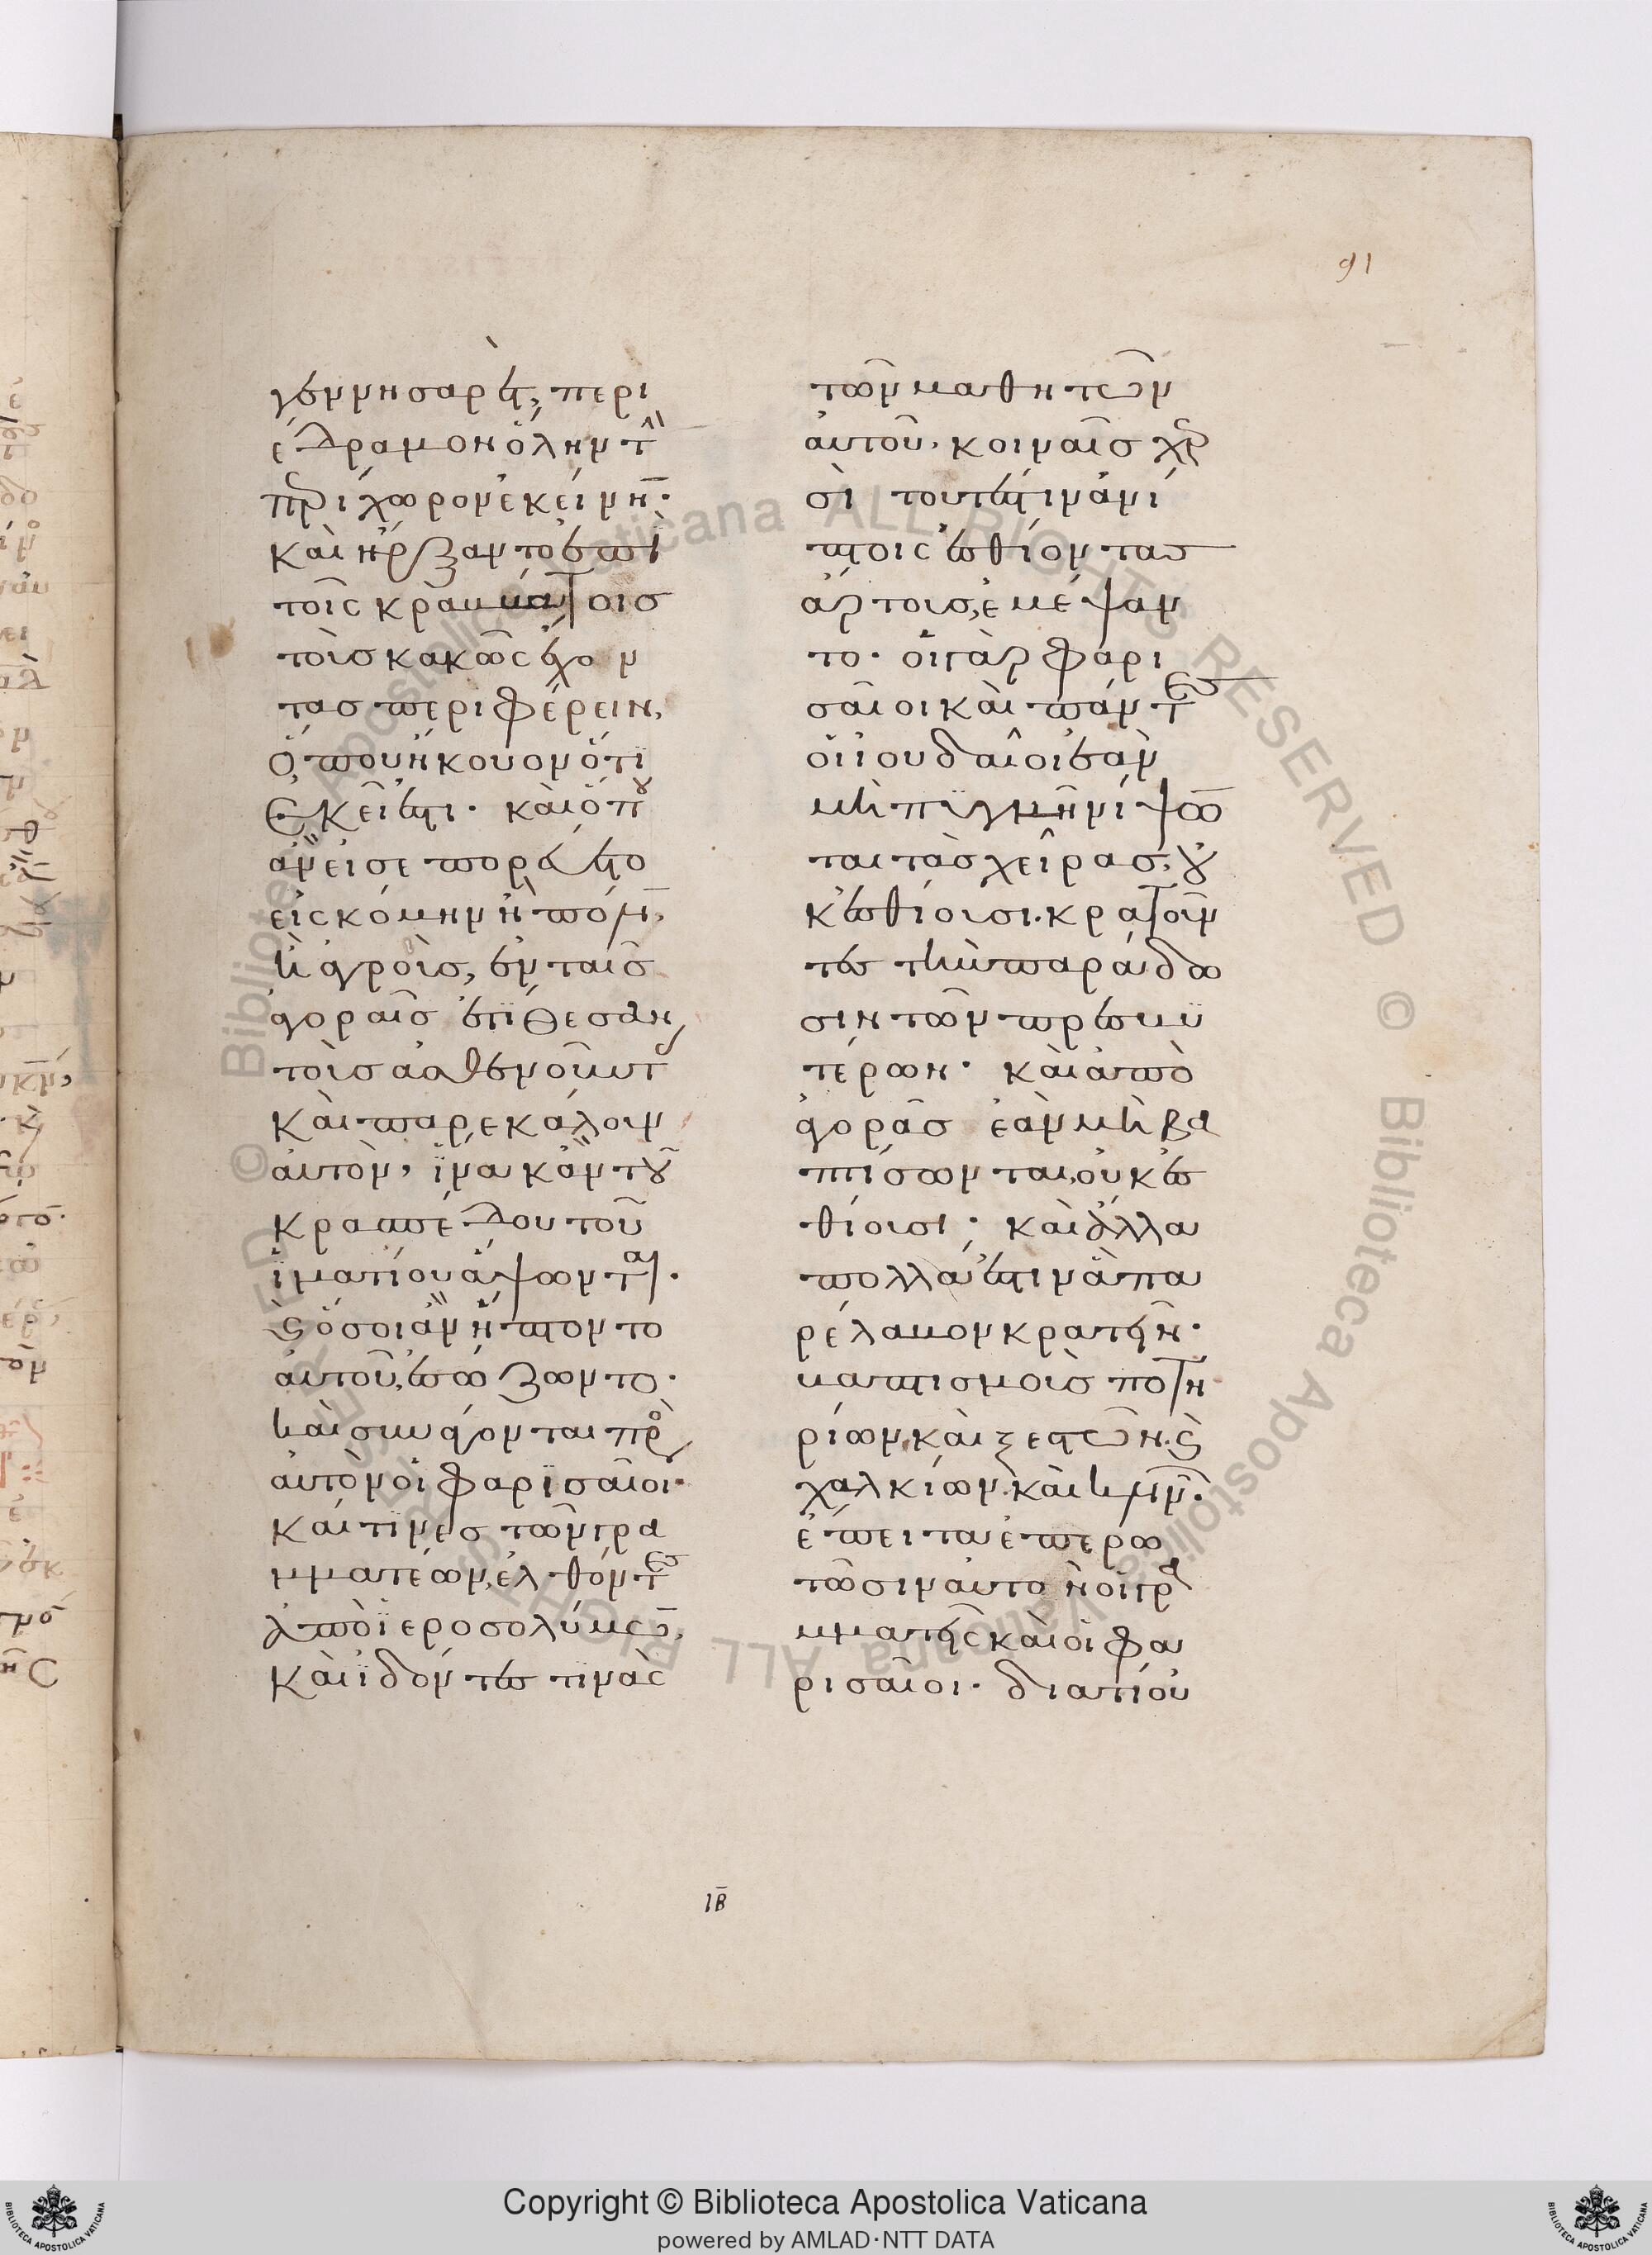 91
γεννησαρὲτ, περι
έδραμον ὅλην τὴ
περίχωρον ἐκείνη̄·
καὶ ἤρξαντο ἐπὶ
τοῖς κραββάτοις
τοὺς κακῶς ἔχον
τας περιφέρειν,
ὅπου ἤκουον ὅτι
ἐκεῖ ἐστι· καὶ ὅπου
ἂν εἰσεπορεύετο
εἰς κόμην ἢ πόλιν,
ἢ ἀγροὺς, ἐν ταῖς
ἀγοραῖς ἐτίθεσαν
τοὺς ἀσθενοῦντ
καὶ παρεκάλουν
αὐτὸν, ἵνα κἂν τοῦ
κρασπέδου τοῦ
ἱματίου ἅψωνται·
ϗ ὅσοι ἂν ἥπτοντο
αὐτοῦ, ἐσώζωντο·
καὶ συνάγονται πρὸ
αὐτὸν οἱ φαρισαῖοι·
καί τινες τῶν γρα
μματέων, ἐλθόντες
ἀπὸ ἱεροσολύμω̄,
καὶ ἰδόντες τινὰς
τῶν μαθητῶν
αὐτοῦ, κοιναῖς χερ
σὶ τουτέστιν ἀνί
πτοις ἐσθίοντας
ἄρτους, ἐμέμψαν
το· οἱ γὰρ φαρι
σαῖοι καὶ πάντες
οἱ ἰουδαῖοι ἐὰν
μὴ πυγμῆ νίψω̄
ται τὰς χεῖρας, οὐ
κ ἐσθίουσι· κρατοῦν
τες τὴν παράδο
σιν τῶν πρεσβυ
τέρων· καὶ ἀπὸ
ἀγορᾶς ἐὰν μὴ βα
πτίσωνται, οὐκ ἐσ
θίουσι· καὶ ἄλλα
πολλά ἐστιν ἃ πα
ρέλαβον κρατεῖν·
βαπτισμοὺς ποτη
ρίων, καὶ ξεστῶν· ϗ
χαλκίων· καὶ κλινῶν·
ἔπειτα ἐπερω
τῶσιν αὐτὸν οἱ γρα
μματεῖς καὶ οἱ φα
ρισαῖοι· διατί οὐ
ιβ̄
Copyright © Biblioteca Apostolica Vaticana
powered by AMLAD·NTT DATA